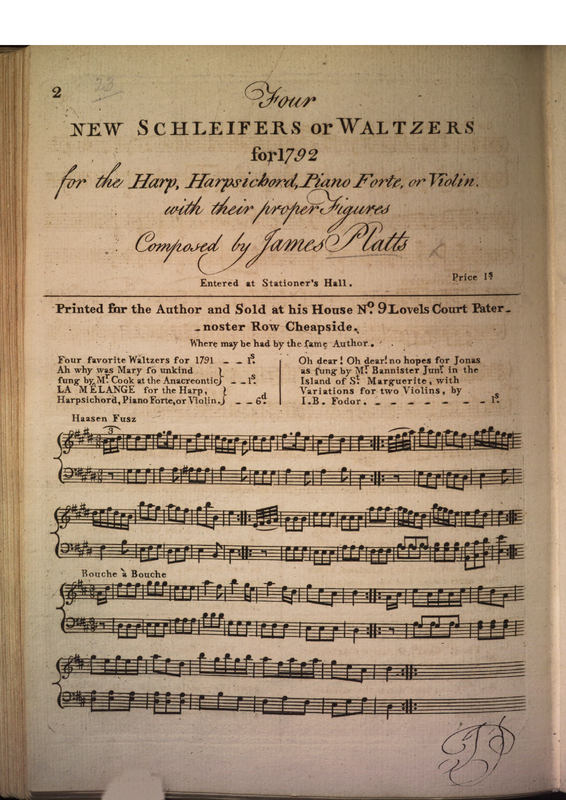 2
23
Four
NEW SCHLEIFERS or WALTZERS
for 1792
for the Harp, Harpsichord, Piano Forte, or Violin.
with their proper Figures
Composed by James Platts
Entered at Stationer's Hall.
Price 1s
Printed for the Author and Sold at his House No. 9 Lovels Court Pater-
-noster Row Cheapside.
Where may be had by the same Author.
Four favorite Waltzers for 1791 - - 1s.
Ah why was Mary so unkind
sung by Mr. Cook at the Anacreontic} - - 1s.
LA MELANGE for the Harp,
Harpsichord, Piano Forte, or Violin.} - - 6d
Oh dear! Oh dear! no hopes for Jonas
as sung by Mr. Bannister Junr. in the
Island of St. Marguerite, with
Variations for two Violins, by
I.B. Fodor. - - - - - 1s.
Haasen Fusz
3
Bouche à Bouche